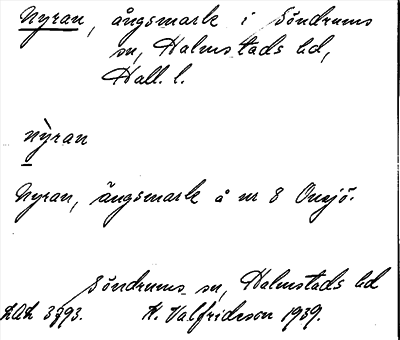 Nyran, ängsmark i Söndrums
sn, Halmstads hd,
Hall. l.
nỳran
Nyran, ängsmark å nr 8 Onsjö.
Söndrums sn, Halmstads hd
LAL 3793. K. Valfridsson 1939.